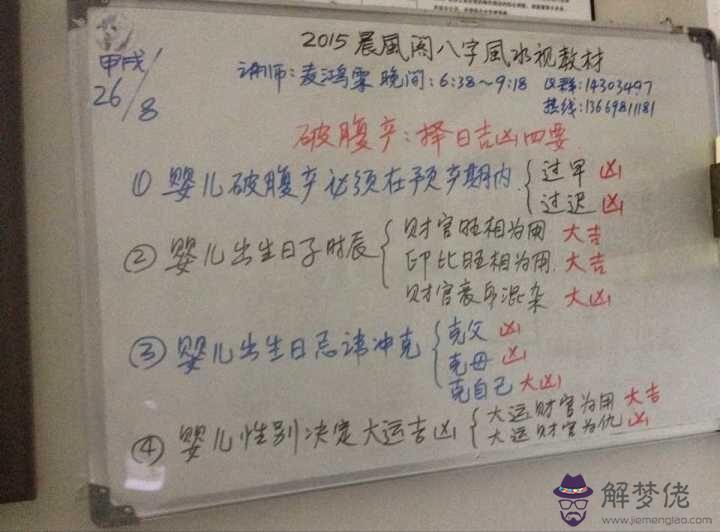 2015晨風阁八字風水视教材
甲戌
26/8
讲师:凌鸿霖 晚间:6:38~9:18 Q群:14303497
热线:13669811181
破腹产:择日吉凶四要
① 婴儿破腹产必须在预产期内 过早 凶
过迟 凶
② 婴儿出生日子时辰 财官旺相为用 大吉
印比旺相为用 大吉
财官衰弱混杂 大凶
③ 婴儿出生日忌讳冲克 克父 凶
克母 凶
克自己 大凶
④ 婴儿性别决定大运吉凶 大运财官为用 大吉
大运财官为仇 凶
解梦佬
www.jiemenglao.com